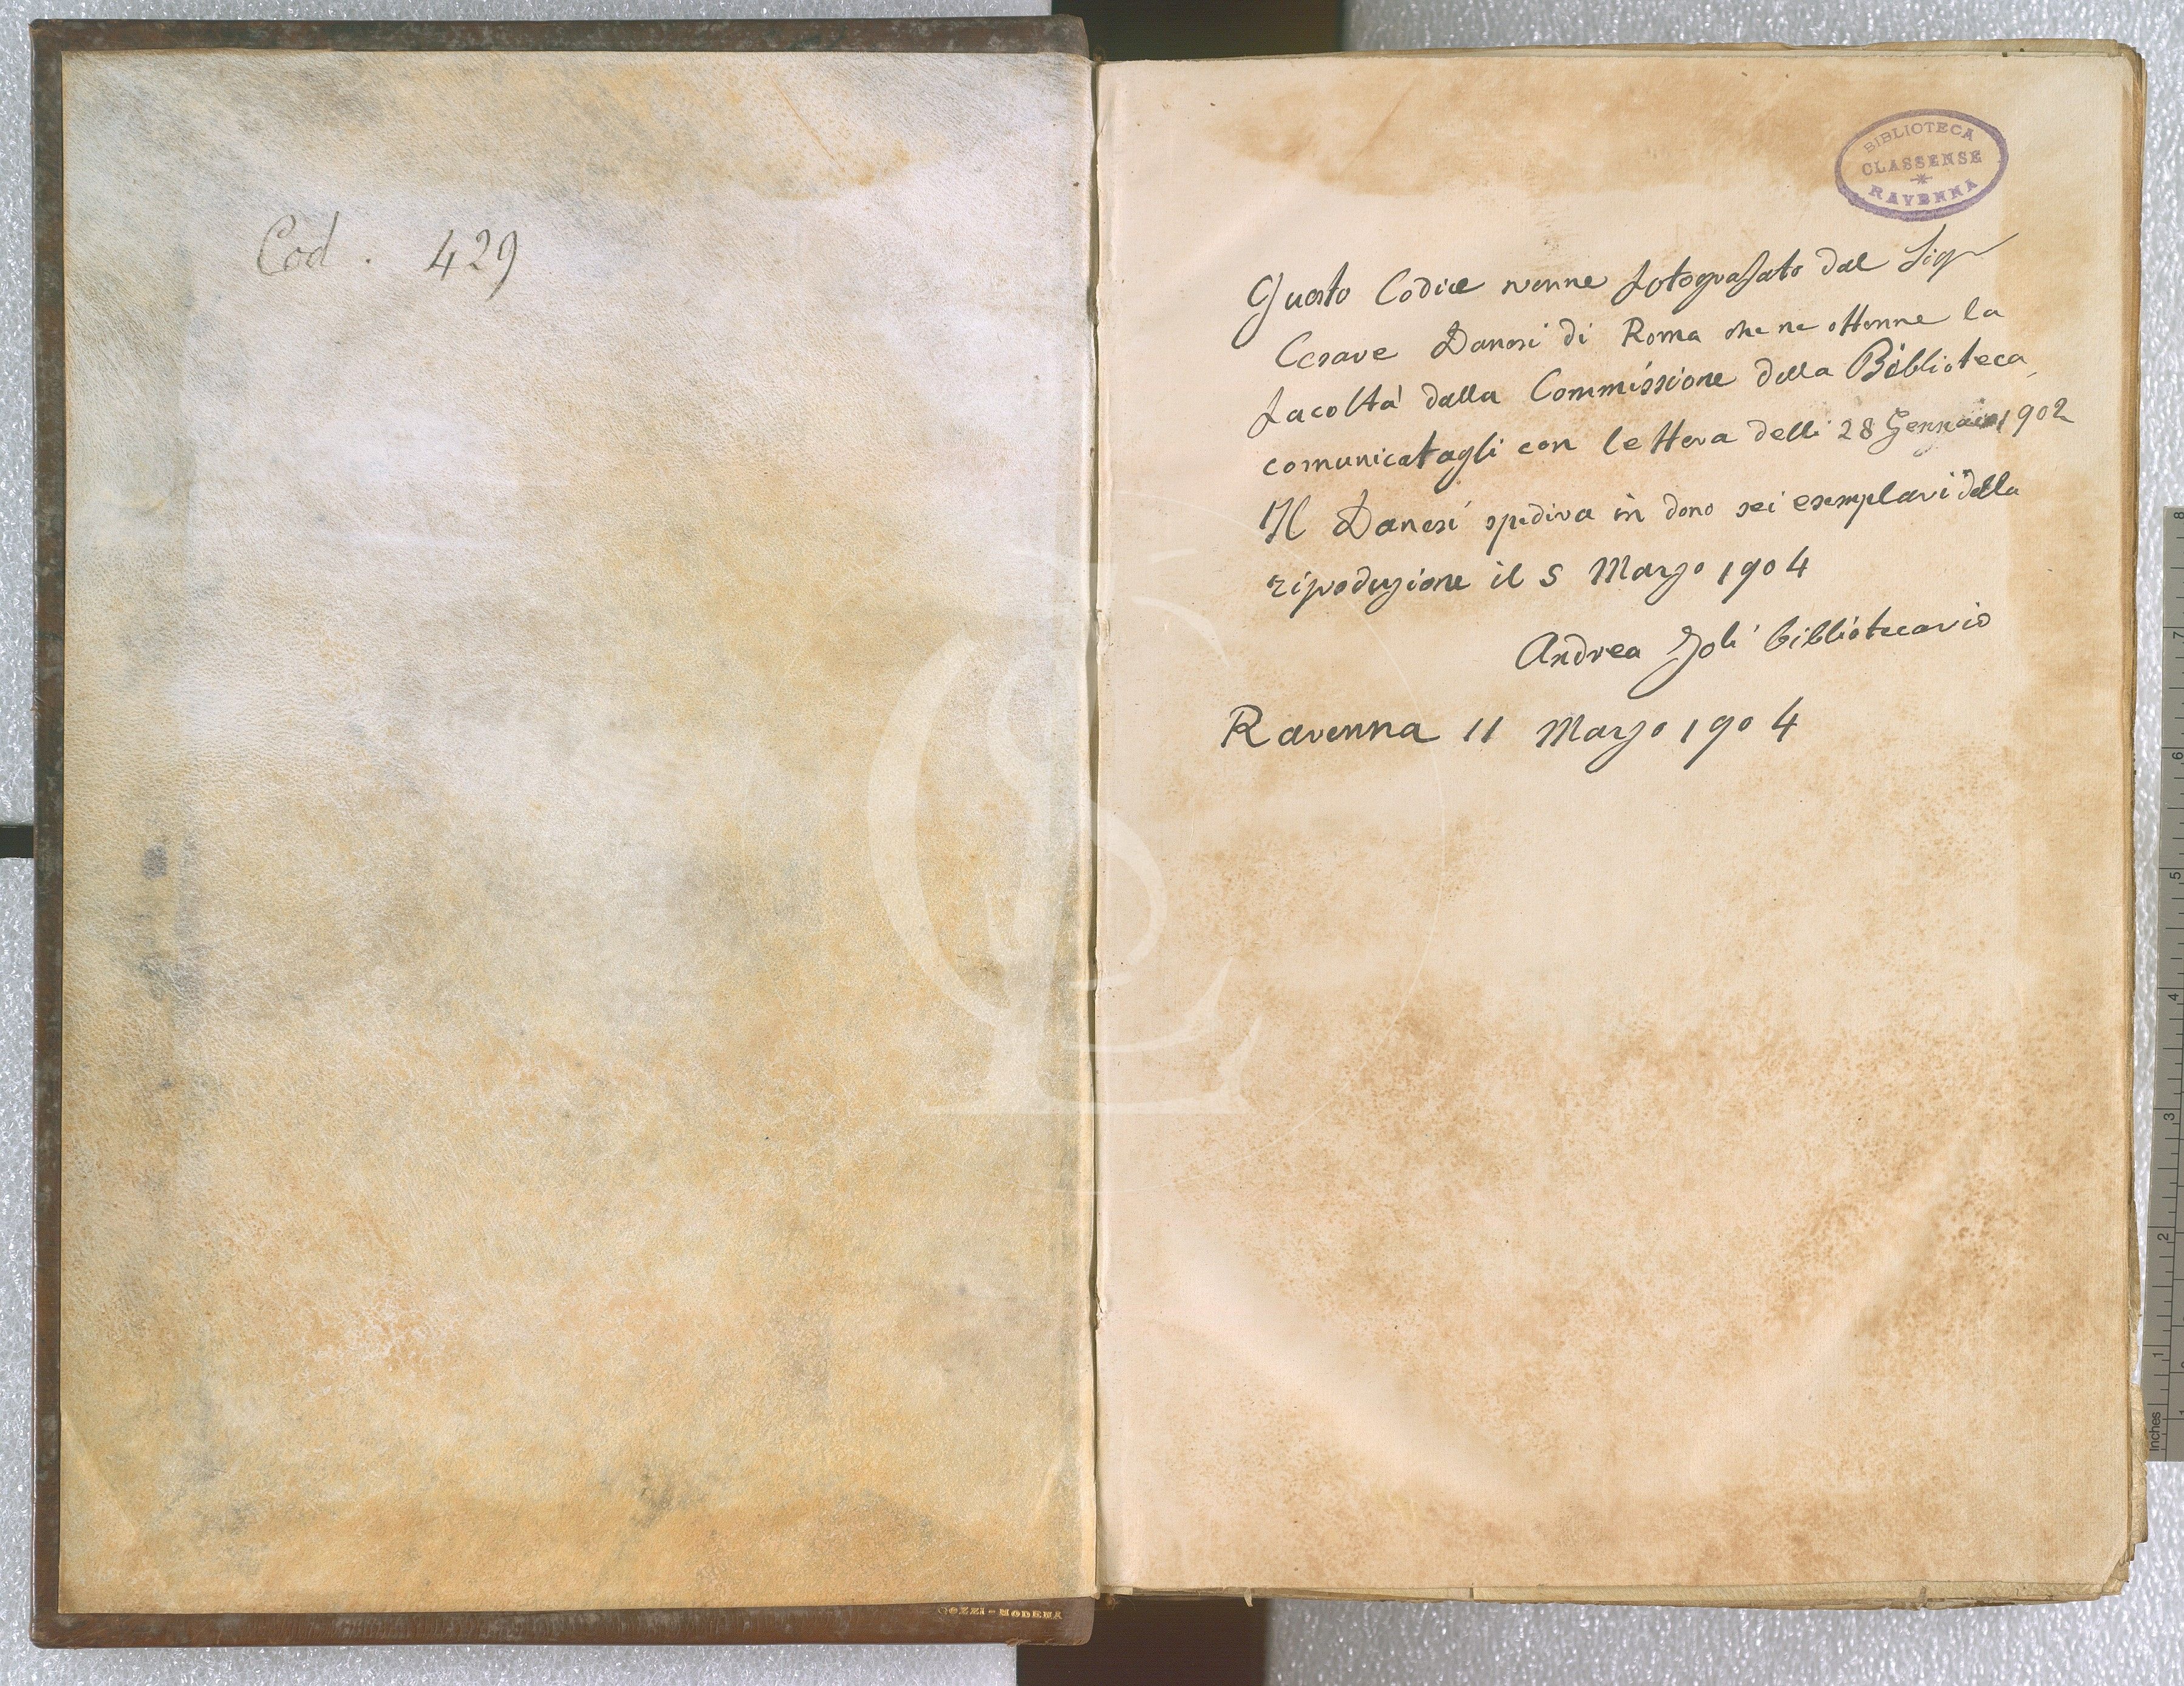 Cod. 429
BIBLIOTECA
CLASSENSE
RAVENNA
Questo Codice venne fotografato dal Sigr
Cesare Danesi di Roma che ne ottenne la
facoltà dalla Commissione della Biblioteca
comunicatagli con lettera delli 28 Gennaio 1902
Il Danesi spediva in dono sei esemplari della
riproduzione il 5 Marzo 1904
Andrea Zoli bibliotecario
Ravenna 11 Marzo 1904
GOZZI - MODENA
8
7
6
5
4
3
2
1
Inches